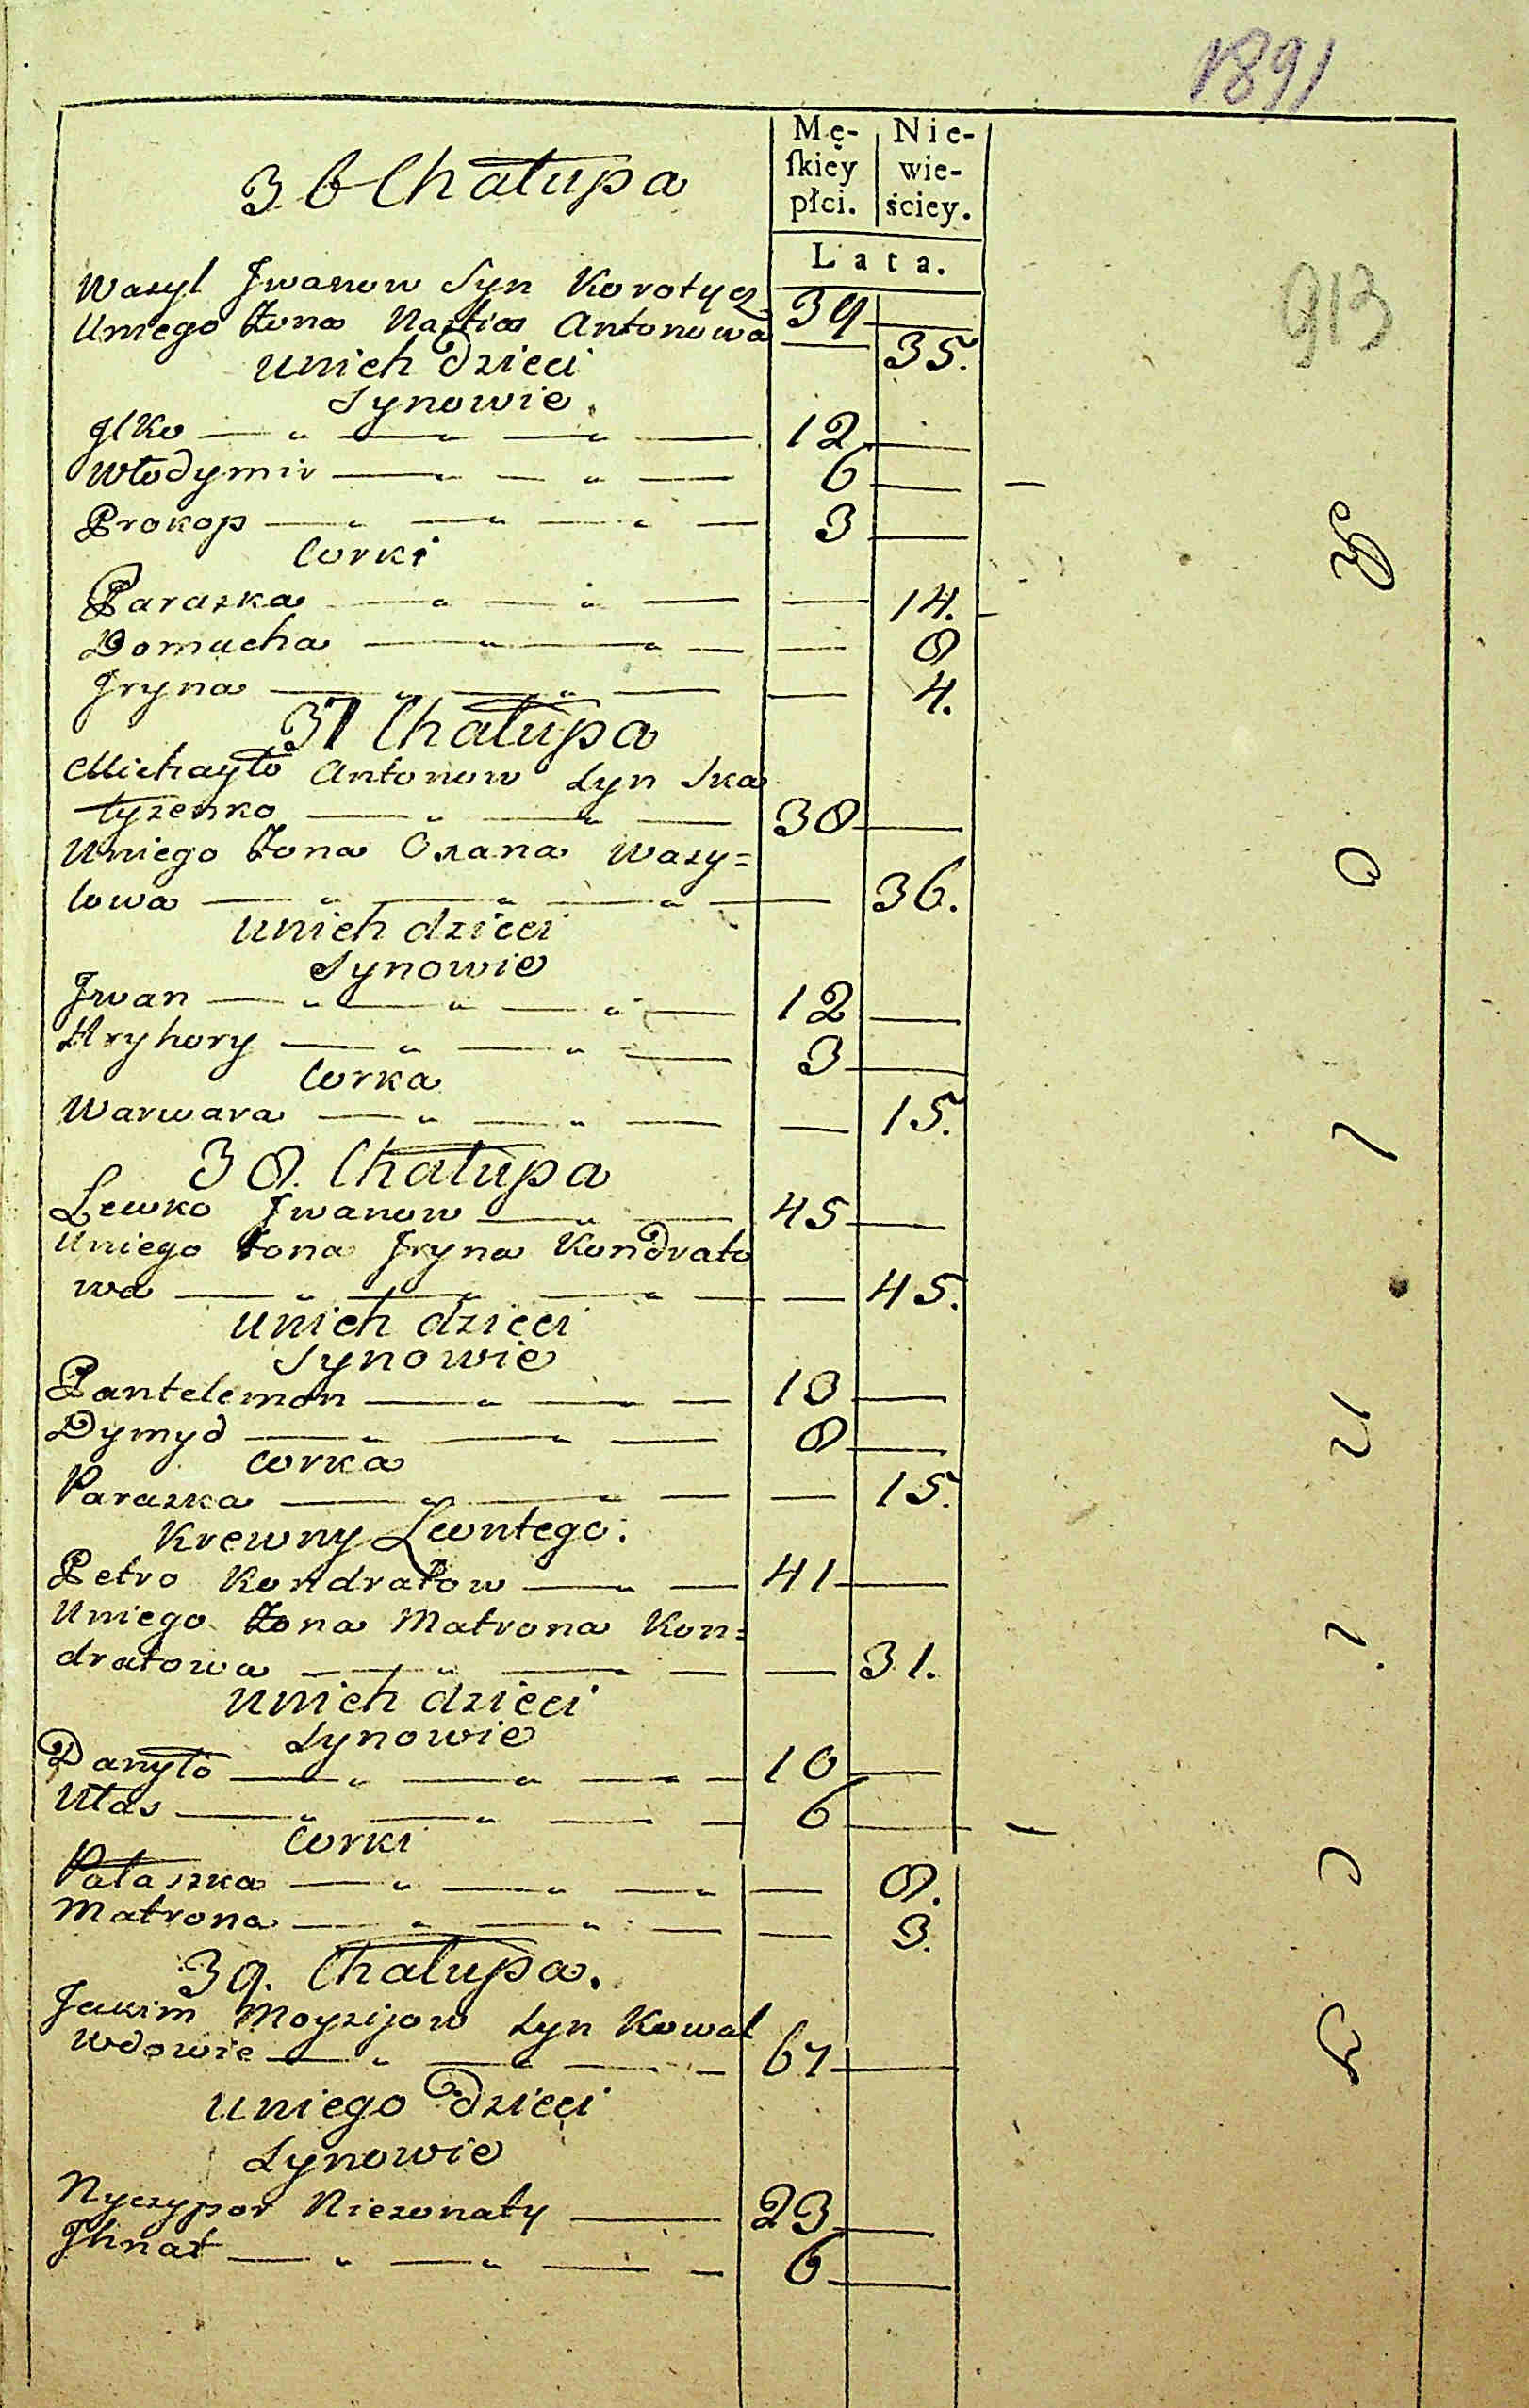 1891
Mę-
ſkiey
płci.
Nie-
wie-
ściey.
Lata.
913
36 Chałupa
Wasyl Jwanow Syn Korotycz 39
Uniego Żona Nastia Antonowa 35.
unich Dzieci
Synowie
Jlko 12
Włodymir 6
Prokop 3
Corki
Paraska 14.
Domacha 8
Jryna 4.
37 Chałupa
Michayło Antonow Syn Ska
łyzenko 38
Uniego Żona Oxana Wasy=
lowa 36.
unich dzieci
Synowie
Jwan 12
Hryhory 3
Corka
Warwara 15.
38. Chałupa
Lewko Jwanow 45
Uniego Żona Jryna Kondrato
wa 45.
unich dzieci
Synowie
Pantelemon 10
Dymyd 8
Corka
Paraska 15.
Krewny Lewntego.
Petro Kondratow 41
Uniego Żona Matrona Kon=
dratowa 31.
unich dzieci
Synowie
Danyło 10
Ułas 6
Corki
Pałaszka 8.
Matrona 3.
39. Chałupa.
Jakim Moyzijow Syn Kowal
Wdowie 67
uniego Dzieci
Synowie
Nyczypor Niezonaty 23
Jhnat 6